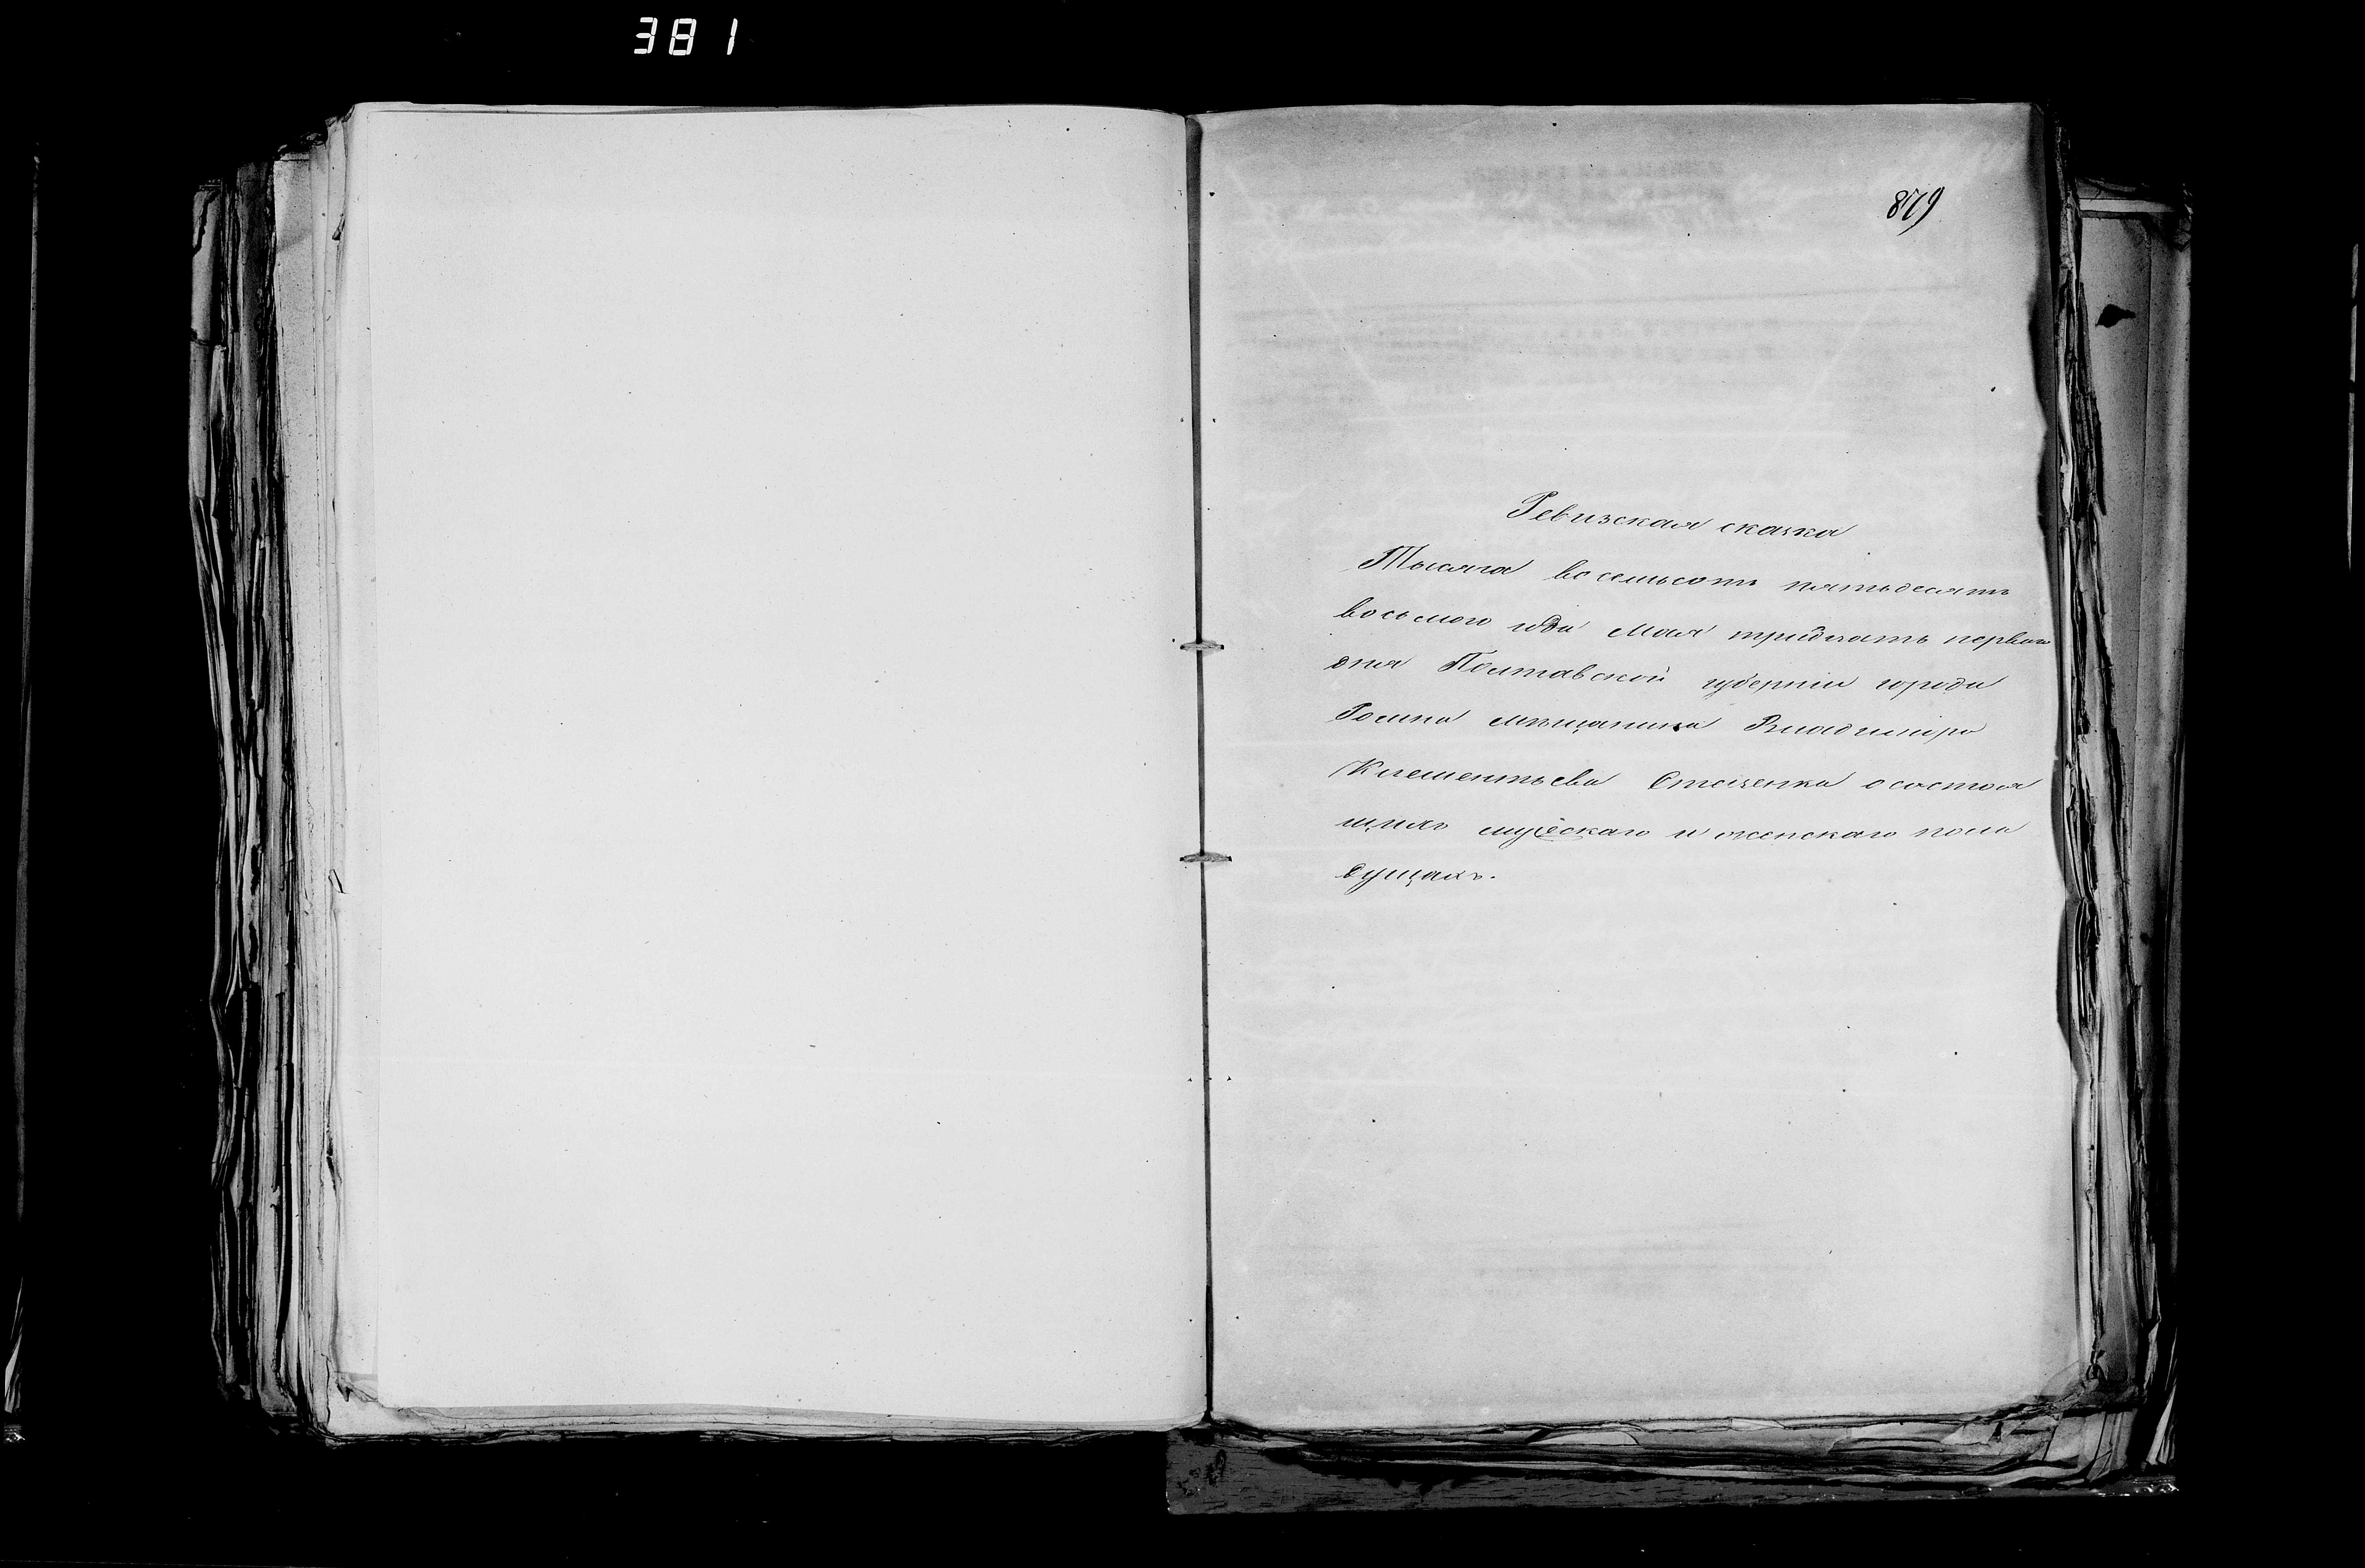 381
879
Ревизская сказка
Тысяча восемьсотъ пятьдесятъ
восьмого года Мая тридцать первого
дня Полтавской губерніи города
Ромна мѣщанина Владиміра
Клементьева Стаценка о состоя
щихъ мужескаго и женскаго пола
душахъ.